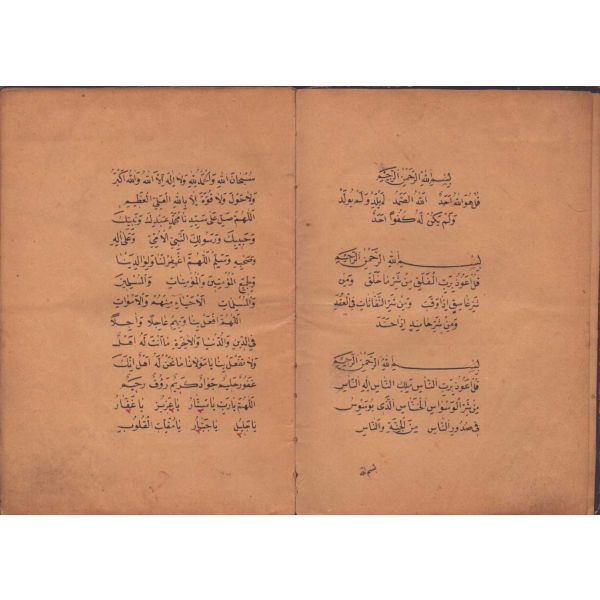 بسم الله الرحمن الرحيم
قل هو الله احد الله الصمد لم يلد ولم يولد
ولم يكن له كفوا احد
بسم الله الرحمن الرحيم
قل اعوذ برب الفلق من شر ما خلق ومن
شر غاسق اذا وقب ومن شر النفاثات في العقد
ومن شر حاسد اذا حسد
بسم الله الرحمن الرحيم
قل اعوذ برب الناس ملك الناس اله الناس
من شر الوسواس الخناس الذي يوسوس
في صدور الناس من الجنة والناس
سبحان الله والحمد لله ولا اله الا الله والله اكبر
ولا حول ولا قوة الا بالله العلي العظيم
اللهم صل على سيدنا محمد عبدك ونبيك
وحبيبك ورسولك النبي الامي وعلى اله
وصحبه وسلم اللهم اغفر لنا ولوالدينا
ولجميع المؤمنين والمؤمنات والمسلمين
والمسلمات الاحياء منهم والاموات
اللهم افعل بنا وبهم عاجلا واجلا
في الدين والدنيا والاخرة ما انت له اهل
ولا تفعل بنا يا مولانا ما نحن له اهل انك
غفور حليم جواد كريم رؤف رحيم
اللهم يا رب يا ستار يا عزيز يا غفار
يا جليل يا جبار يا مقلب القلوب